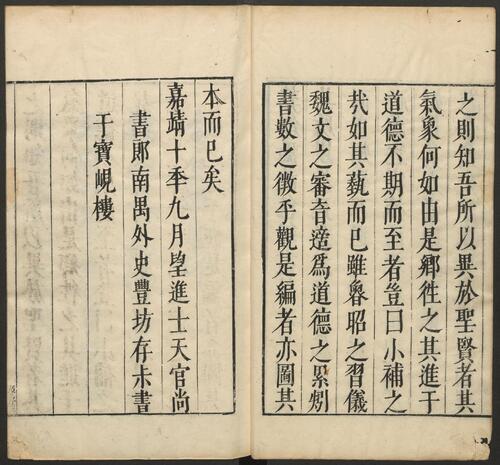 之則知吾所以異於聖賢者其
氣象何如由是鄉徃之其進于
道德不期而至者豈曰小補之
㢤如其藝而已雖魯昭之習儀
魏文之審音適爲道德之累矧
書數之微乎觀是編者亦圖其
本而已矣
嘉靖十季九月望進士天官尚
書郎南禺外史豐坊存未書
于寶峴樓